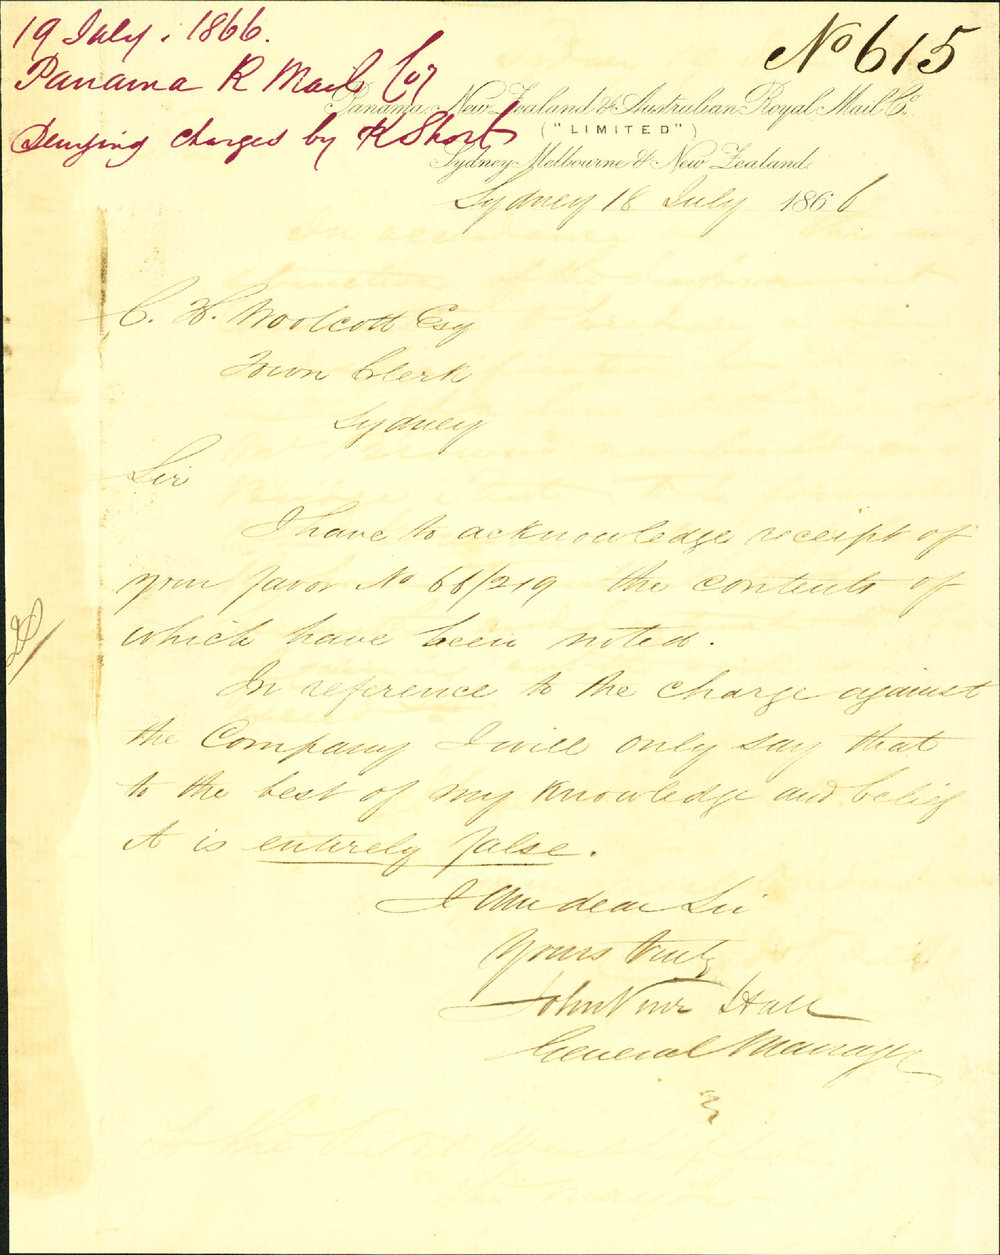 19 July. 1866.
Panama R Mail Coy
Denying charges by R Short
No 615
Panama New Zealand & Australian Royal Mail Co.
("LIMITED")
Sydney Melbourne & New Zealand.
Sydney 18 July 1866
C. H. Woolcott Esq
Town Clerk
Sydney
Sir
I have to acknowledge receipt of
your favor No 66/219 the contents of
which have been noted.
In reference to the charge against
the Company I will only say that
to the best of my knowledge and belief
it is entirely false.
I am dear Sir
Yours truly
John Vine Hall
General Manager